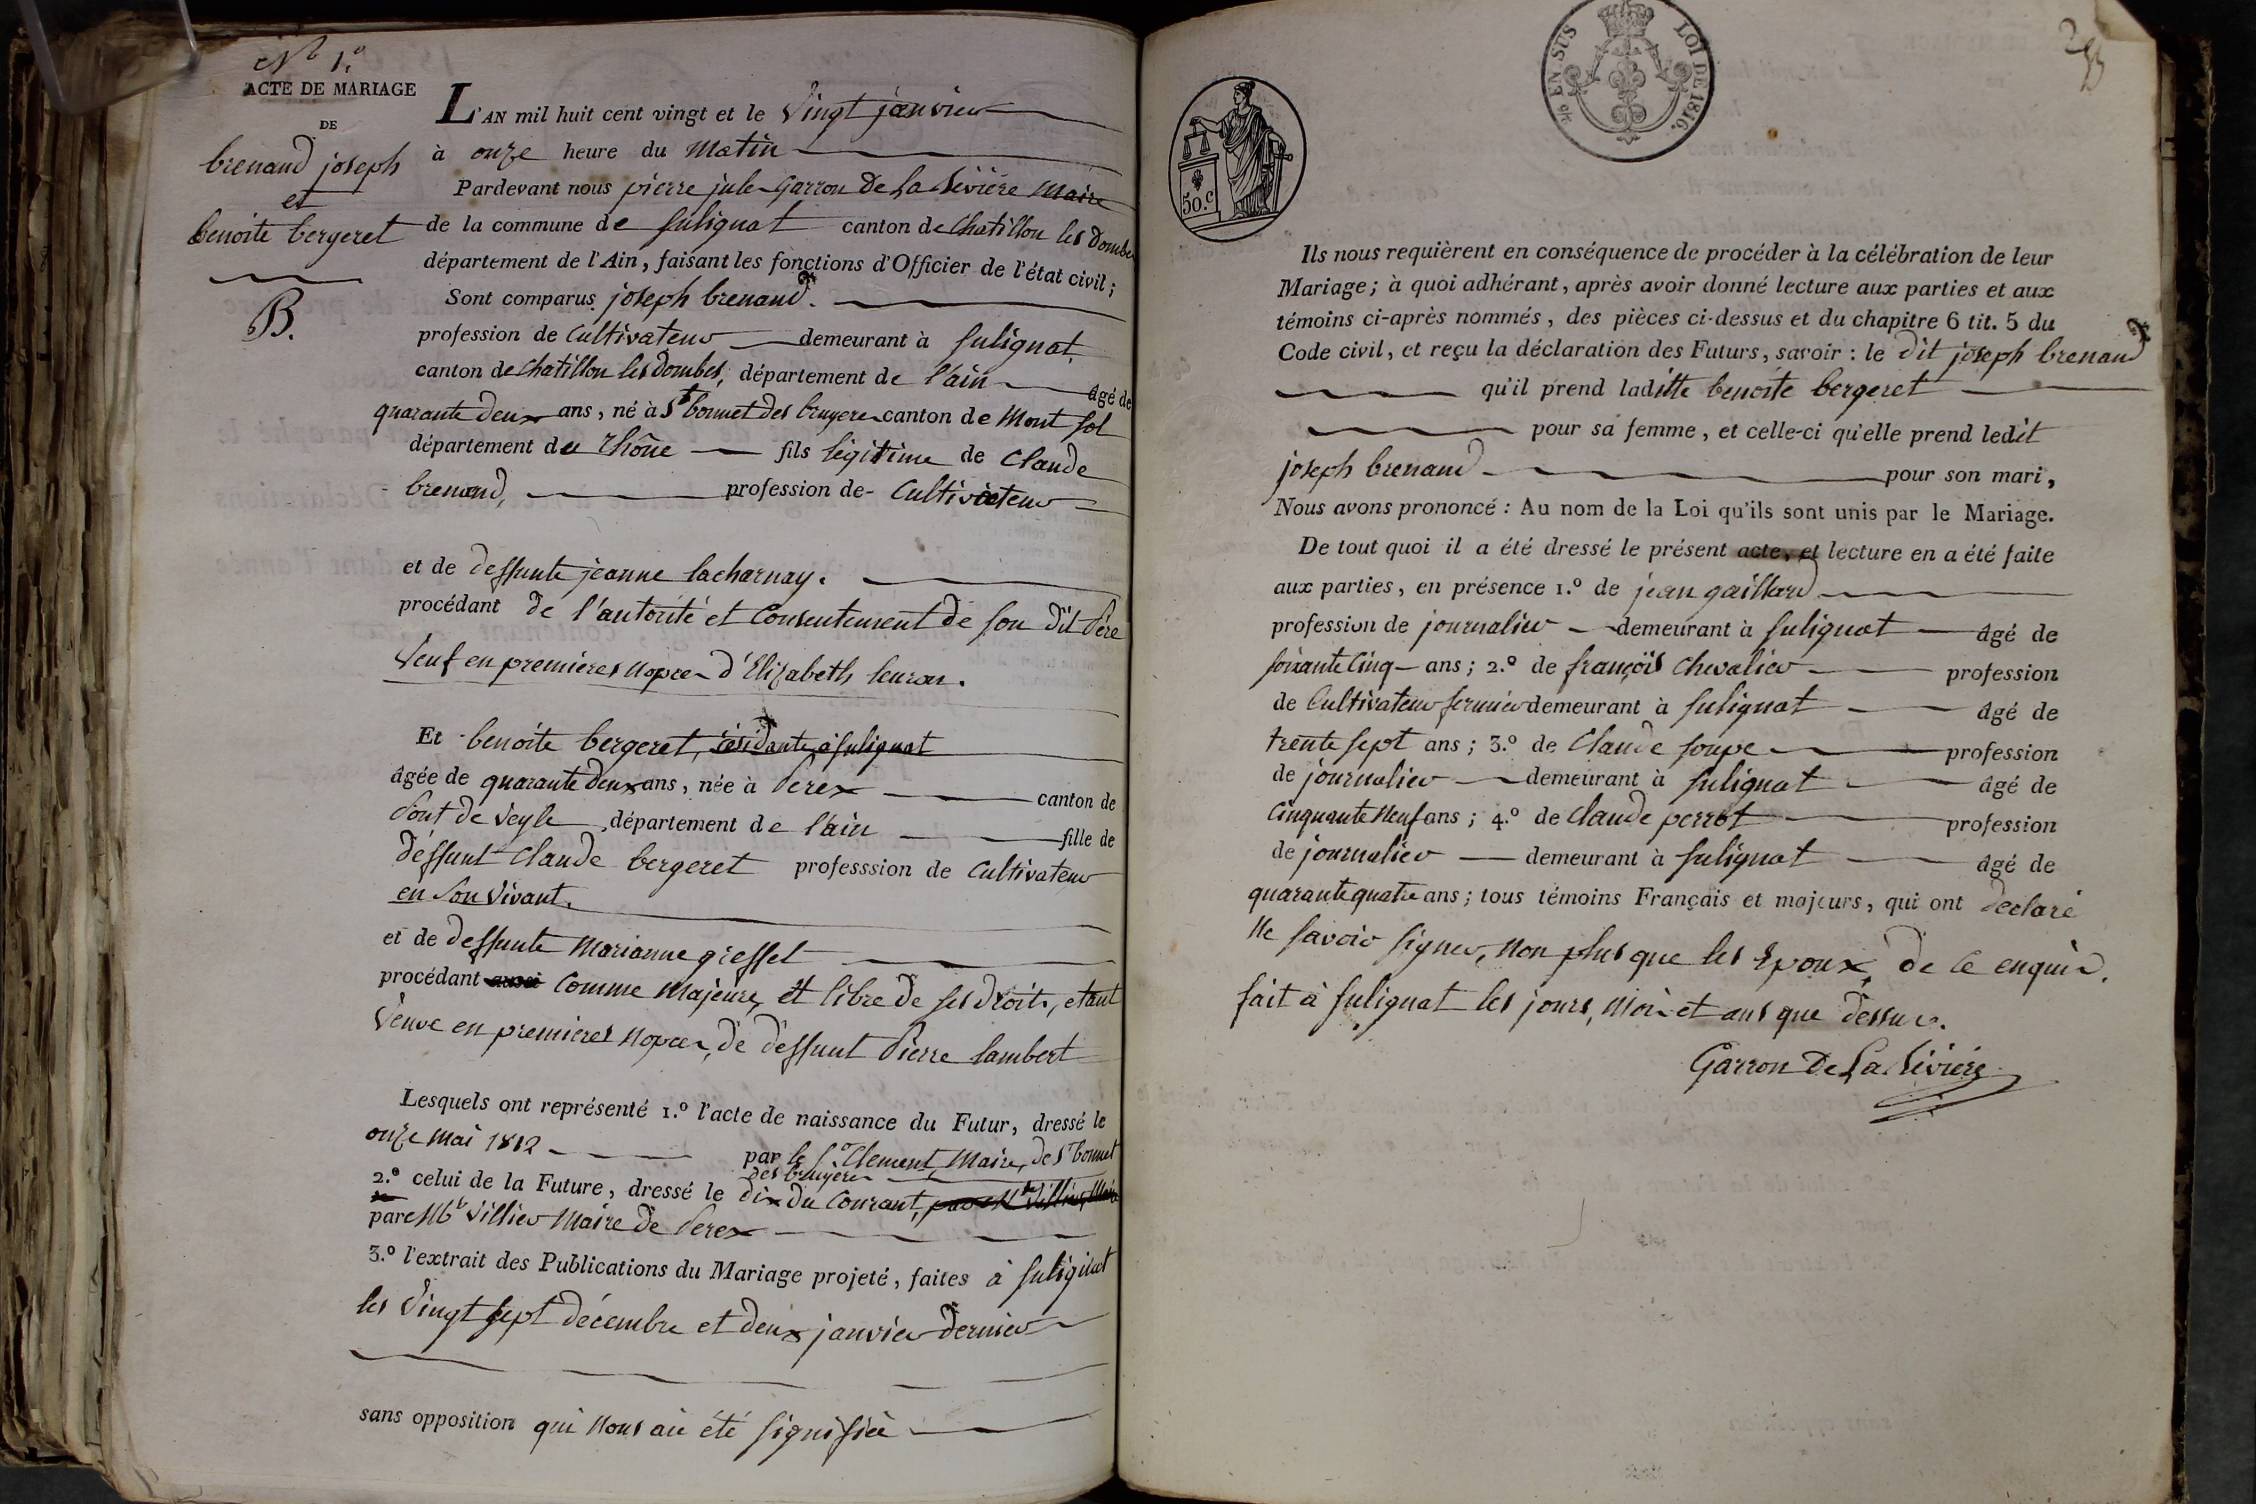 N.º 1.er
ACTE DE MARIAGE
DE
brenand joseph
et
benoite bergeret
B.
L'AN mil huit cent vingt et le vingt janvier
à onze heure du matin
Pardevant nous pierre jule Garron De La Rivière Maire
de la commune de sulignat canton de Chatillon les Dombes
département de l'Ain, faisant les fonctions d'Officier de l'état civil;
Sont comparus joseph brenand.
profession de Cultivateur demeurant à sulignat
canton de Chatillon les Dombes, département de l'ain âgé de
quarante deux ans, né à St bonnet des bruyere canton de Mont sol
département du Rhône fils légitime de Claude
brenand, profession de Cultivateur
et de deffunte jeanne lacharnay.
procédant de l'autorité et Consentement de son dit Père
veuf en premieres nopces d'Elizabeth
Et benoite bergeret, residante à sulignat
âgée de quarante deux ans, née à Perex canton de
Pont de Veyle département de l'ain fille de
deffunt Claude bergeret professsion de Cultivateur
en son vivant.
et de deffunte Marianne greffet
procédant Comme Majeure, et libre de ses droits, etant
veuve en premieres nopces, de deffunt Pierre Lambert
Lesquels ont représenté 1.º l'acte de naissance du Futur, dressé le
onze mai 1812 par le Sr Clement, Maire, de St bonnet
des bruyères
2.º celui de la Future, dressé le dix du Courant,
par Mr Villier Maire de Perex
3.º l'extrait des Publications du Mariage projeté, faites à sulignat
les vingt sept décembre et deux janvier dernier
sans opposition qui nous aie été signifiée
EN SUS LOI DE 1816.
50.c
Ils nous requièrent en conséquence de procéder à la célébration de leur
Mariage; à quoi adhérant, après avoir donné lecture aux parties et aux
témoins ci-après nommés, des pièces ci-dessus et du chapitre 6 tit. 5 du
Code civil, et reçu la déclaration des Futurs, savoir : le dit joseph brenand
qu'il prend laditte benoite bergeret
pour sa femme, et celle-ci qu'elle prend ledit
joseph brenand pour son mari,
Nous avons prononcé : Au nom de la Loi qu'ils sont unis par le Mariage.
De tout quoi il a été dressé le présent acte, et lecture en a été faite
aux parties, en présence 1.º de jean gaillard
profession de journalier demeurant à sulignat âgé de
soixante Cinq ans; 2.º de françois Chevalier profession
de Cultivateur fermier demeurant à sulignat âgé de
trente sept ans; 3.º de Claude soupe profession
de journalier demeurant à sulignat âgé de
Cinquante neuf ans; 4.º de Claude perrot profession
de journalier demeurant à sulignat âgé de
quarante quatre ans; tous témoins Français et majeurs, qui ont declaré
Ne savoir signer, non plus que les Epoux, de ce enquis.
fait à sulignat les jours, mois et ans que dessus.
Garron De La Rivière